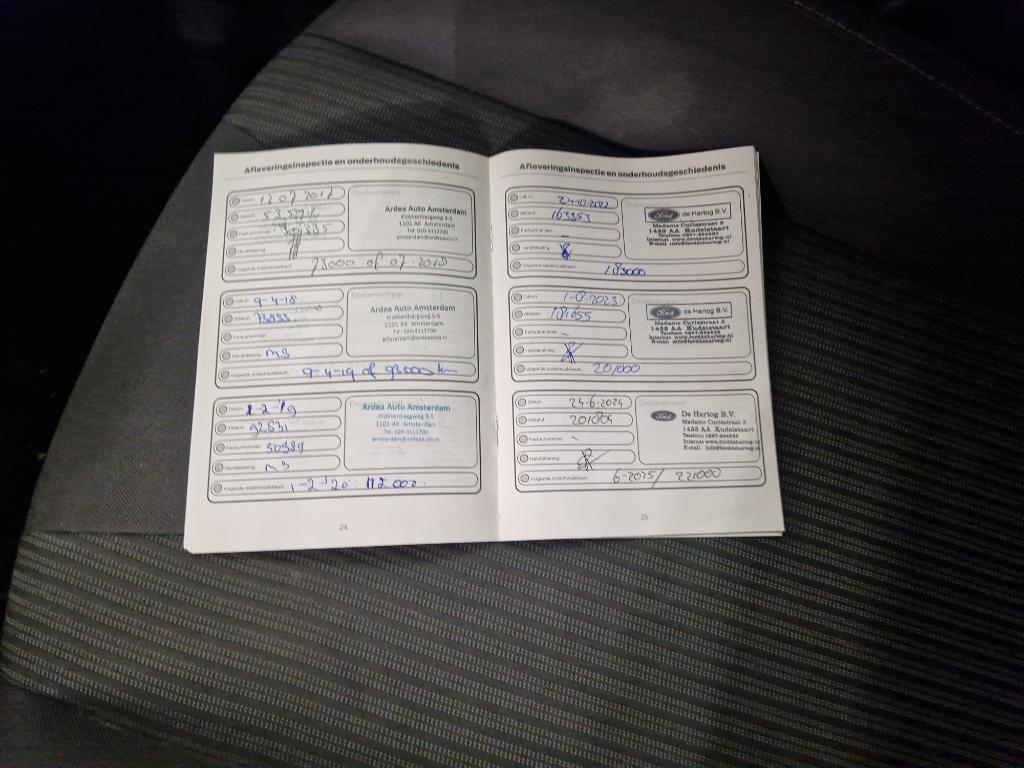 Afleveringsinspectie en onderhoudsgeschiedenis
Datum 12 07 2017
Dealerstempel
Ardea Auto Amsterdam
Klokkenbergweg 3-5
1101 AK Amsterdam
Tel. 020-3112700
amsterdam@ardeaauto.nl
Volgende onderhoudsbeurt 73000 of 07-2018
Datum 9-4-18
Dealerstempel
Ardea Auto Amsterdam
Klokkenbergweg 3-5
1101 AK Amsterdam
Tel. 020-3112700
amsterdam@ardeaauto.nl
Factuurnummer
Handtekening MB
Volgende onderhoudsbeurt 9-4-19 of 93000 km
Datum 1-2-19
Ardea Auto Amsterdam
Klokkenbergweg 3-5
1101 AK Amsterdam
Tel. 020-3112700
amsterdam@ardeaauto.nl
Afstand 92831
Factuurnummer
Handtekening MB
Volgende onderhoudsbeurt 1-2-'20 112000.
24
Afleveringsinspectie en onderhoudsgeschiedenis
Datum 24-10-2022
Afstand 163353
Factuurnummer -
Handtekening
Volgende onderhoudsbeurt 183000
Ford de Hartog B.V.
Madame Curiestraat 2
1433 AA Kudelstaart
Telefoon 0297-324582
Internet www.forddehartog.nl
E-mail info@forddehartog.nl
Datum 1-8-2023
Afstand 181655
Factuurnummer -
Handtekening
Volgende onderhoudsbeurt 201000
Ford de Hartog B.V.
Madame Curiestraat 2
1433 AA Kudelstaart
Internet www.forddehartog.nl
E-mail info@forddehartog.nl
Datum 25-6-2024
Dealerstempel
Afstand 201804
Factuurnummer -
Handtekening
Volgende onderhoudsbeurt 6-2025/ 221000
Ford De Hartog B.V.
Madame Curiestraat 2
1433 AA Kudelstaart
Internet www.forddehartog.nl
E-mail info@forddehartog.nl
25